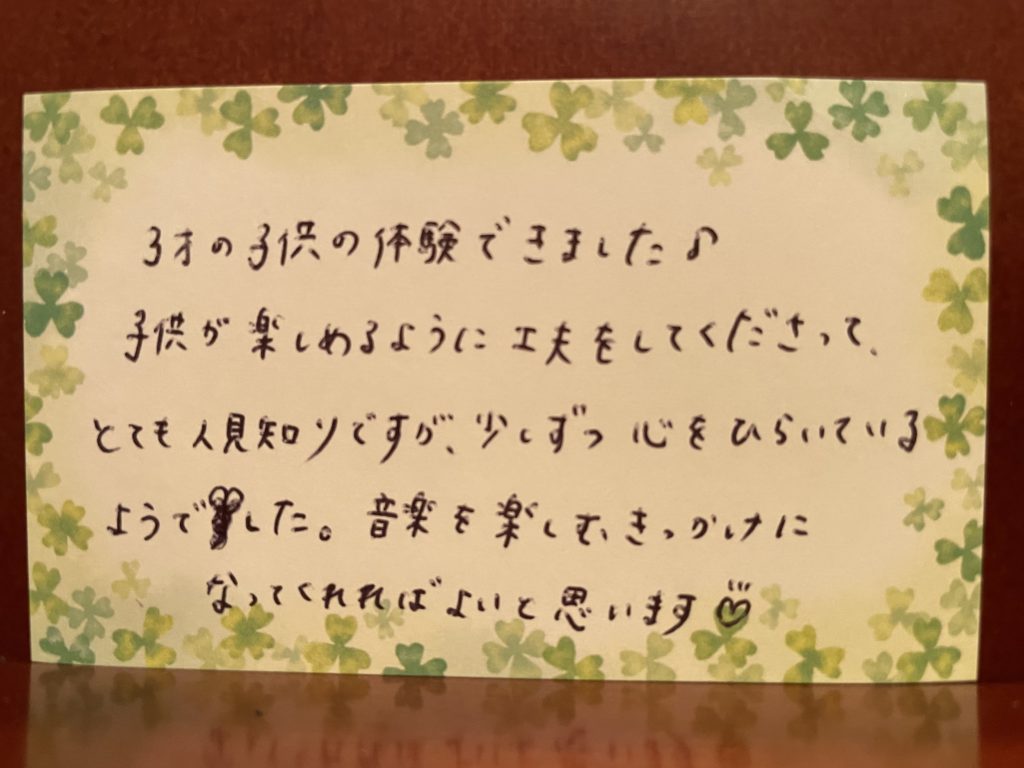 3才の子供の体験できました♪
子供が楽しめるように工夫をしてくださって、
とても人見知りですが、少しずつ心をひらいている
ようでした。音楽を楽しむきっかけに
なってくれればよいと思います♡